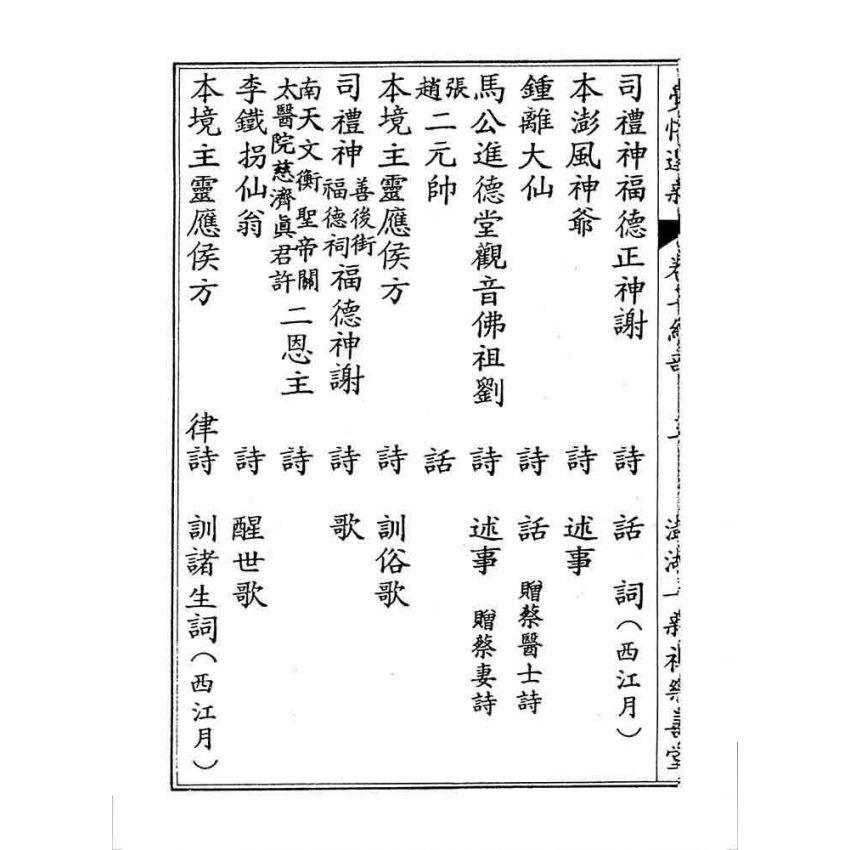 司禮神福德正神謝 詩 話 詞（西江月）
本澎風神爺 詩 述事
鍾離大仙 詩 話 贈蔡醫士詩
馬公進德堂觀音佛祖劉 詩 述事 贈蔡妻詩
張趙二元帥 話
本境主靈應侯方 詩 訓俗歌
司禮神善後街福德祠福德神謝 詩 歌
南天文衡聖帝關太醫院慈濟眞君許二恩主 詩
李鐵拐仙翁 詩 醒世歌
本境主靈應侯方 律詩 訓諸生詞（西江月）